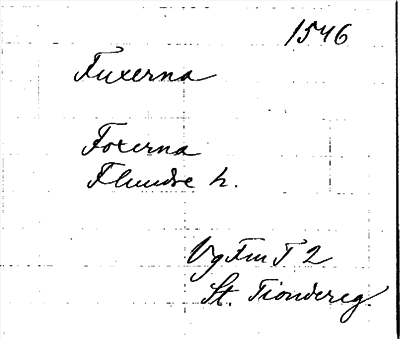 1546
Fuxerna
Foxerna
Flundre h.
Vg Fm T 2
St. Tiondereg.